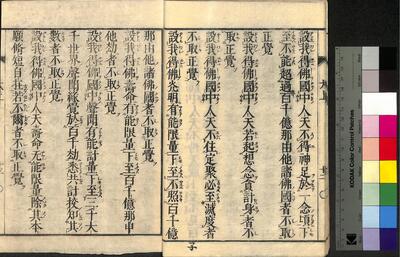 設我得佛國中人天不得神足於一念頃下
至不能超過百千億那由他諸佛國者不取
正覺
設我得佛國中人天若起想念貪計身者不
取正覺
設我得佛國中人天不住定聚必至滅度者
不取正覺
設我得佛光明有能限量下至不照百千億
那由他諸佛國者不取正覺
設我得佛壽命有能限量下至百千億那由
他劫者不取正覺
設我得佛國中聲聞有能計量下至三千大
千世界聲聞緣覺於百千劫悉共計校知其
數者不取正覺
設我得佛國中人天壽命无能限量除其本
願脩短自在若不爾者不取正覺
KODAK Color Control Patches